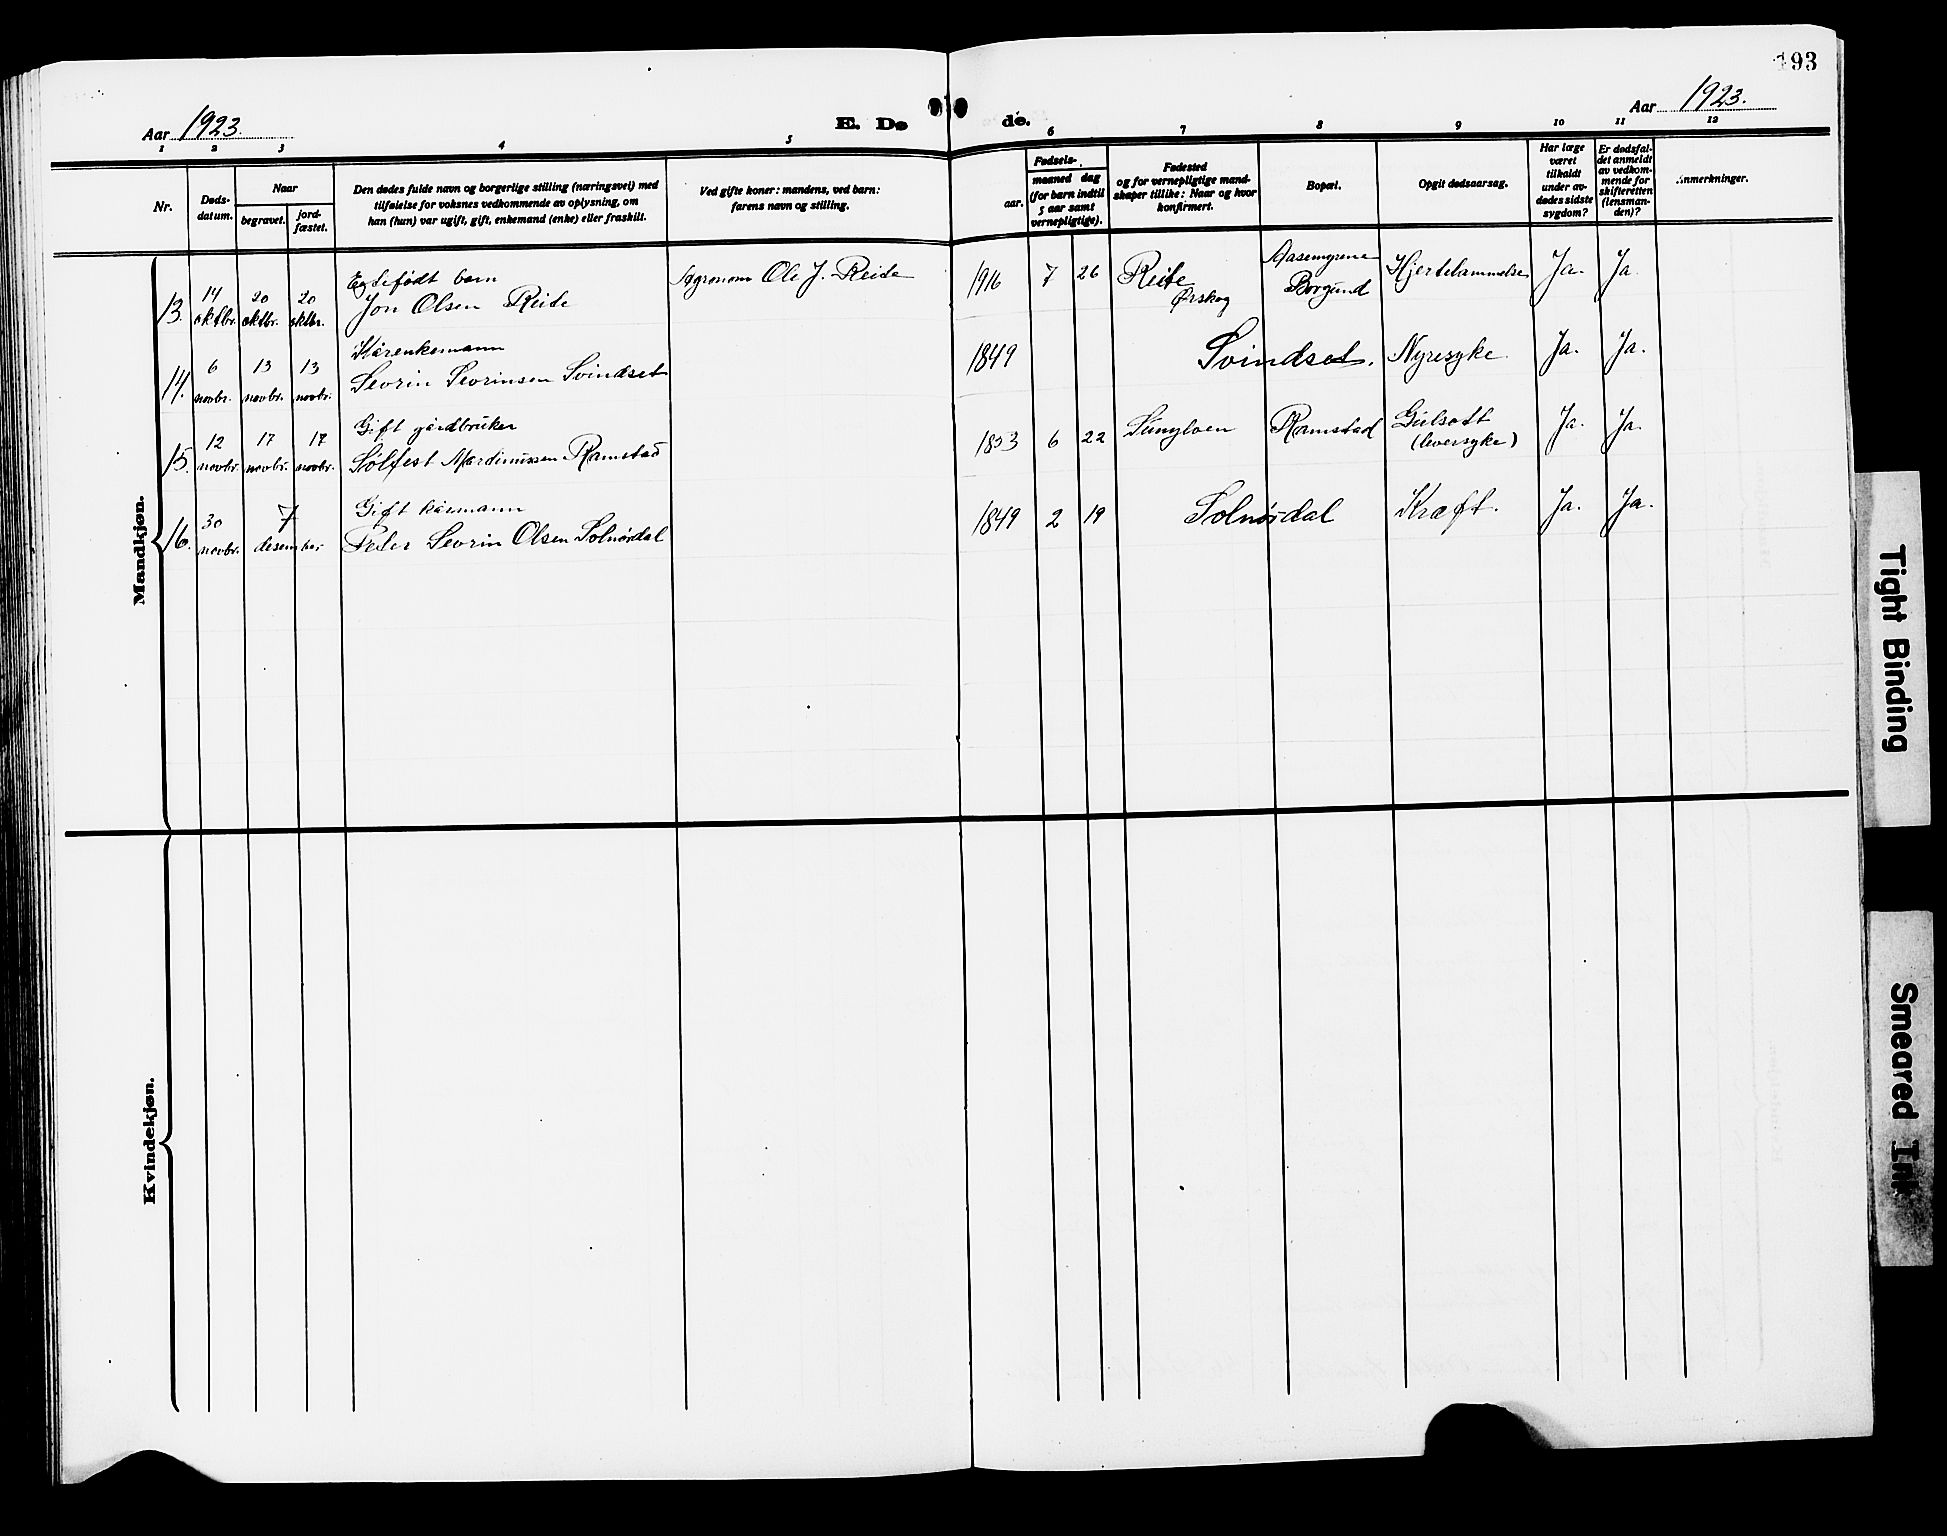 193
Aar 1923. E. Dø de. Aar 1923.
1 2 3 4 5 6 7 8 9 10 11 12
Nr.
Døds-
datum.
Naar
begravet.
jord-
fæstet.
Den dødes fulde navn og borgerlige stilling (næringsvei) med
tilføielse for voksnes vedkommende av oplysning, om
han (hun) var ugift, gift, enkemand (enke) eller fraskilt.
Ved gifte koner: mandens, ved barn:
farens navn og stilling.
Fødsels-
aar.
maaned dag
(for barn indtil
5 aar samt
vernepligtige).
Fødested
og for vernepligtige mand-
skaper tillike: Naar og hvor
konfirmert.
Bopæl.
Opgit dødsaarsag.
Har læge
været
tilkaldt
under av-
dødes sidste
sygdom?
Er dødsfal-
det anmeldt
av vedkom-
mende for
skifteretten
(lensman-
den)?
Anmerkninger.
Mandkjøn.
13. 14 oktbr. 20 oktbr. 20 oktbr.
Egtefødt barn
Jon Olsen Reite
Agronom Ole J. Reite
1916 7 26
Reite
Ørskog
Aasemyrene
Borgund
Hjertelammelse Ja. Ja
14. 6 novbr. 13 novbr. 13 novbr.
Kårenkemann
Sevrin Sevrinsen Svindset
1849 Svindset. Nyresyke. Ja. Ja.
15. 12 novbr. 17 novbr. 17 novbr.
Gift gårdbruker
Sølfest Mardinussen Ramstad
1853 6 22 Sunylven Ramstad
Gulsott
(leversyke)
Ja. Ja.
16. 30 novbr. 7 desember
Gift kårmann
Peter Sevrin Olsen Solnørdal
1849 2 19 Solnørdal Kræft. Ja. Ja.
Kvindekjøn.
Tight Binding
Smeared Ink